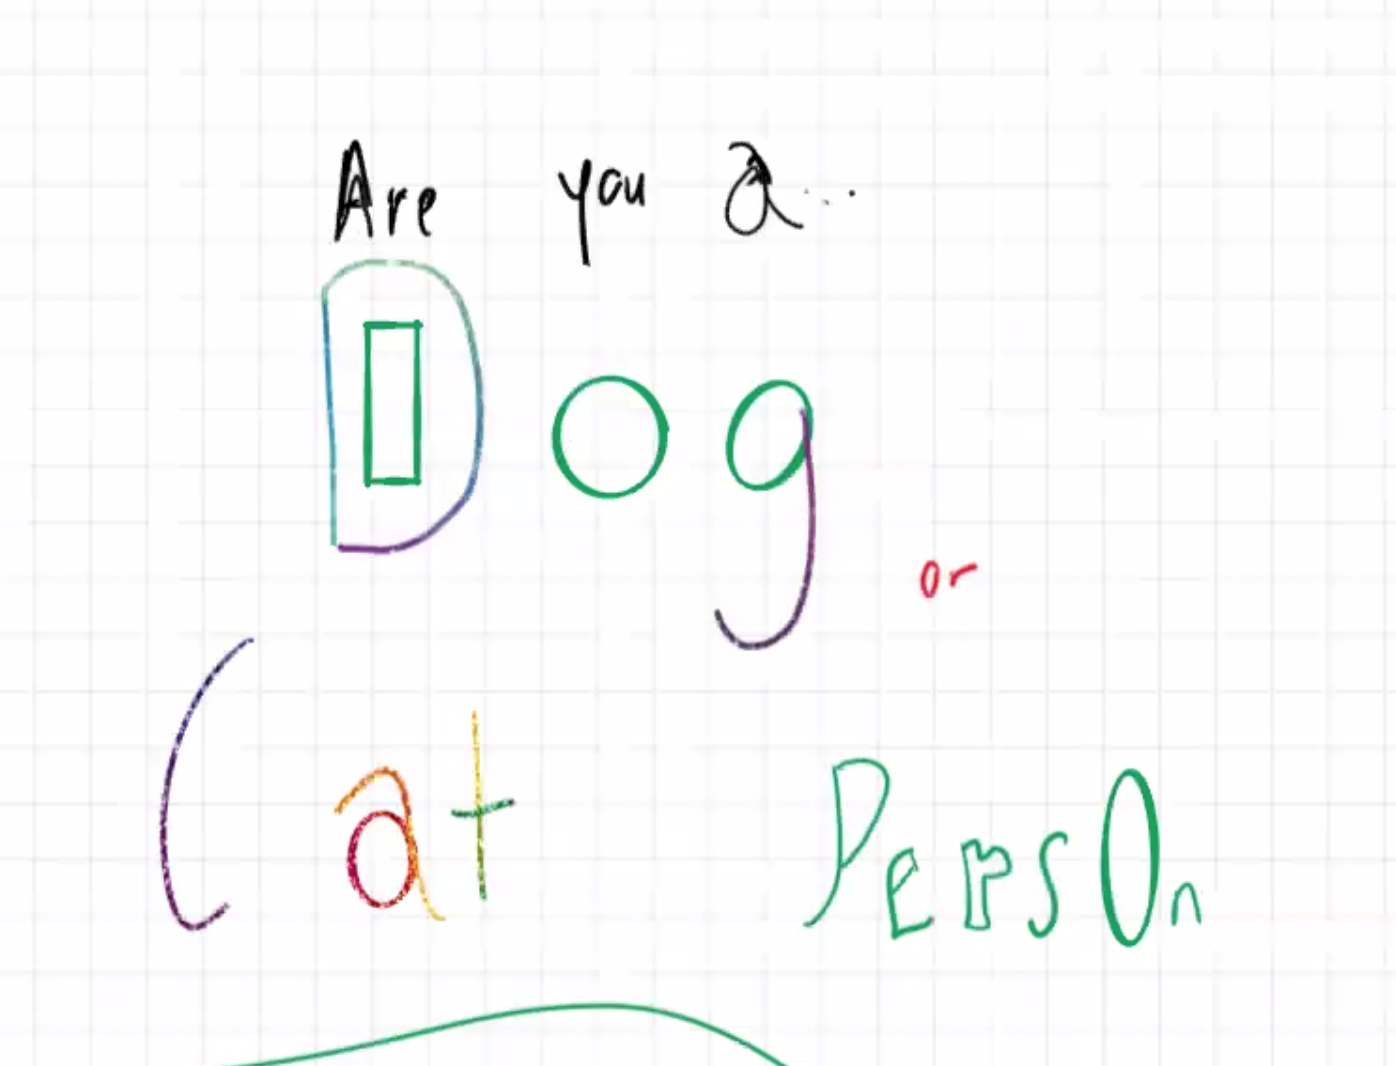 Are you a...
Dog
or
Cat PersOn